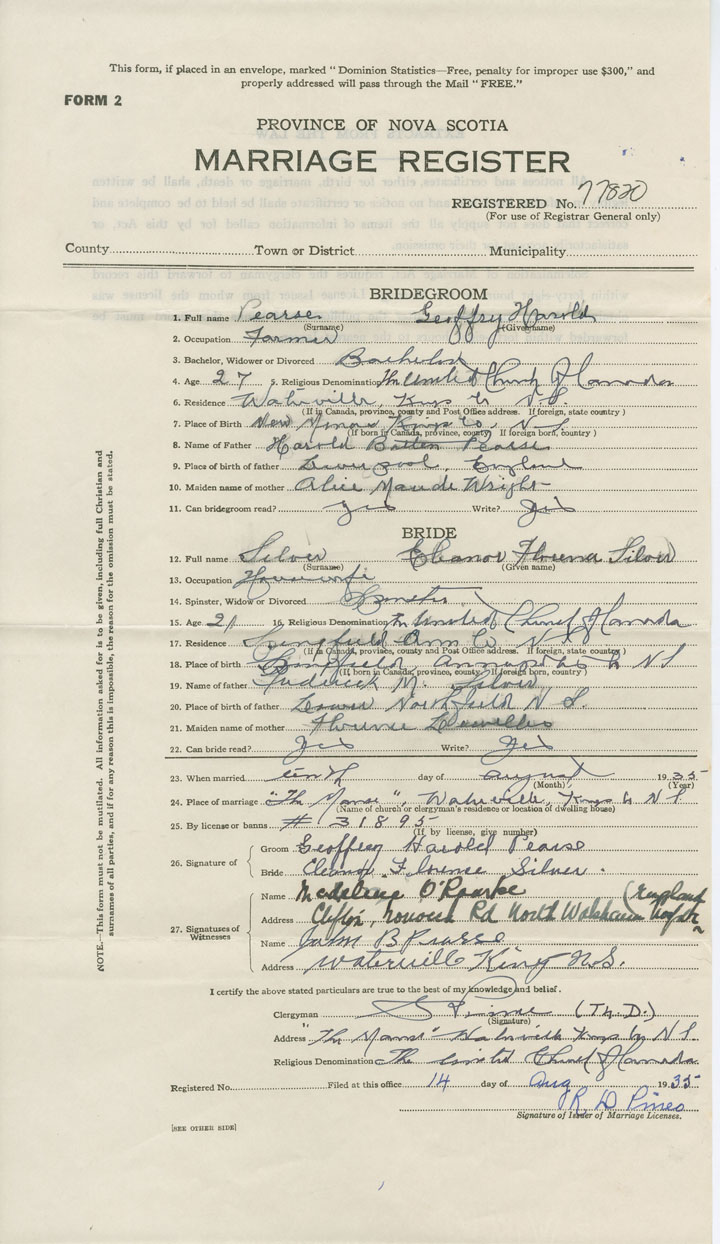 This form, if placed in an envelope, marked "Dominion Statistics—Free, penalty for improper use $300," and
properly addressed will pass through the Mail "FREE."
FORM 2
PROVINCE OF NOVA SCOTIA
MARRIAGE REGISTER
REGISTERED No. 77820
(For use of Registrar General only)
County Town or District Municipality
BRIDEGROOM
1. Full name Pearse Geoffry Harold
(Surname) (Given name)
2. Occupation Farmer
3. Bachelor, Widower or Divorced Bachelor
4. Age 27 5. Religious Denomination The United Church of Canada
6. Residence Waterville, Kings Co N.S.
(If in Canada, province, county and Post Office address. If foreign, state country)
7. Place of Birth New Minas Kings Co, N.S.
(If born in Canada, province, county If foreign born, country)
8. Name of Father Harold Batten Pearse
9. Place of birth of father Liverpool, England
10. Maiden name of mother Alice Maude Wright
11. Can bridegroom read? Yes Write? Yes
BRIDE
12. Full name Silver Eleanor Florence Silver
(Surname) (Given name)
13. Occupation Housewife
14. Spinster, Widow or Divorced Spinster
15. Age 21 16. Religious Denomination The United Church of Canada
17. Residence Springfield Ann Co N.S.
(If in Canada, province, county and Post Office address. If foreign, state country)
18. Place of birth Springfield, Annapolis Co N.S
(If born in Canada, province, county If foreign born, country)
19. Name of father Frederick M. Silver
20. Place of birth of father Lower Northfield N.S.
21. Maiden name of mother Florence
22. Can bride read? Yes Write? Yes
23. When married tenth day of August 1935
(Month) (Year)
24. Place of marriage "The Manse", Waterville, Kings Co N.S
(Name of church or clergyman's residence or location of dwelling house)
25. By license or banns # 31895
(If by license, give number)
26. Signature of
Groom Geoffrey Harold Pearse
Bride Eleanor Florence Silver.
27. Signatures of Witnesses
Name Madeleine O'Rourke (England
Address Clifton, Norwich Rd North Walsham
Name B Pearse
Address Waterville Kings N.S.
I certify the above stated particulars are to the best of my knowledge and belief.
Clergyman (Th.D.)
(Signature)
Address "The Manse" Waterville Kings Co N.S.
Religious Denomination The United Church of Canada
Registered No. Filed at this office 14 day of Aug 1935
R. D Pineo
Signature of Issuer of Marriage Licenses.
[SEE OTHER SIDE]
NOTE.—This form must not be mutilated. All information asked for is to be given, including full Christian and
surnames of all parties, and if for any reason this is impossible, the reason for the omission must be stated.